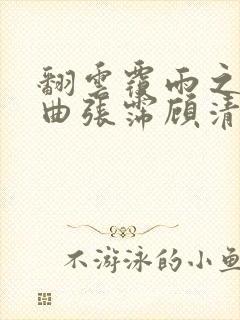 翻雲覆雨之
曲張霈顧清
不游泳的小魚